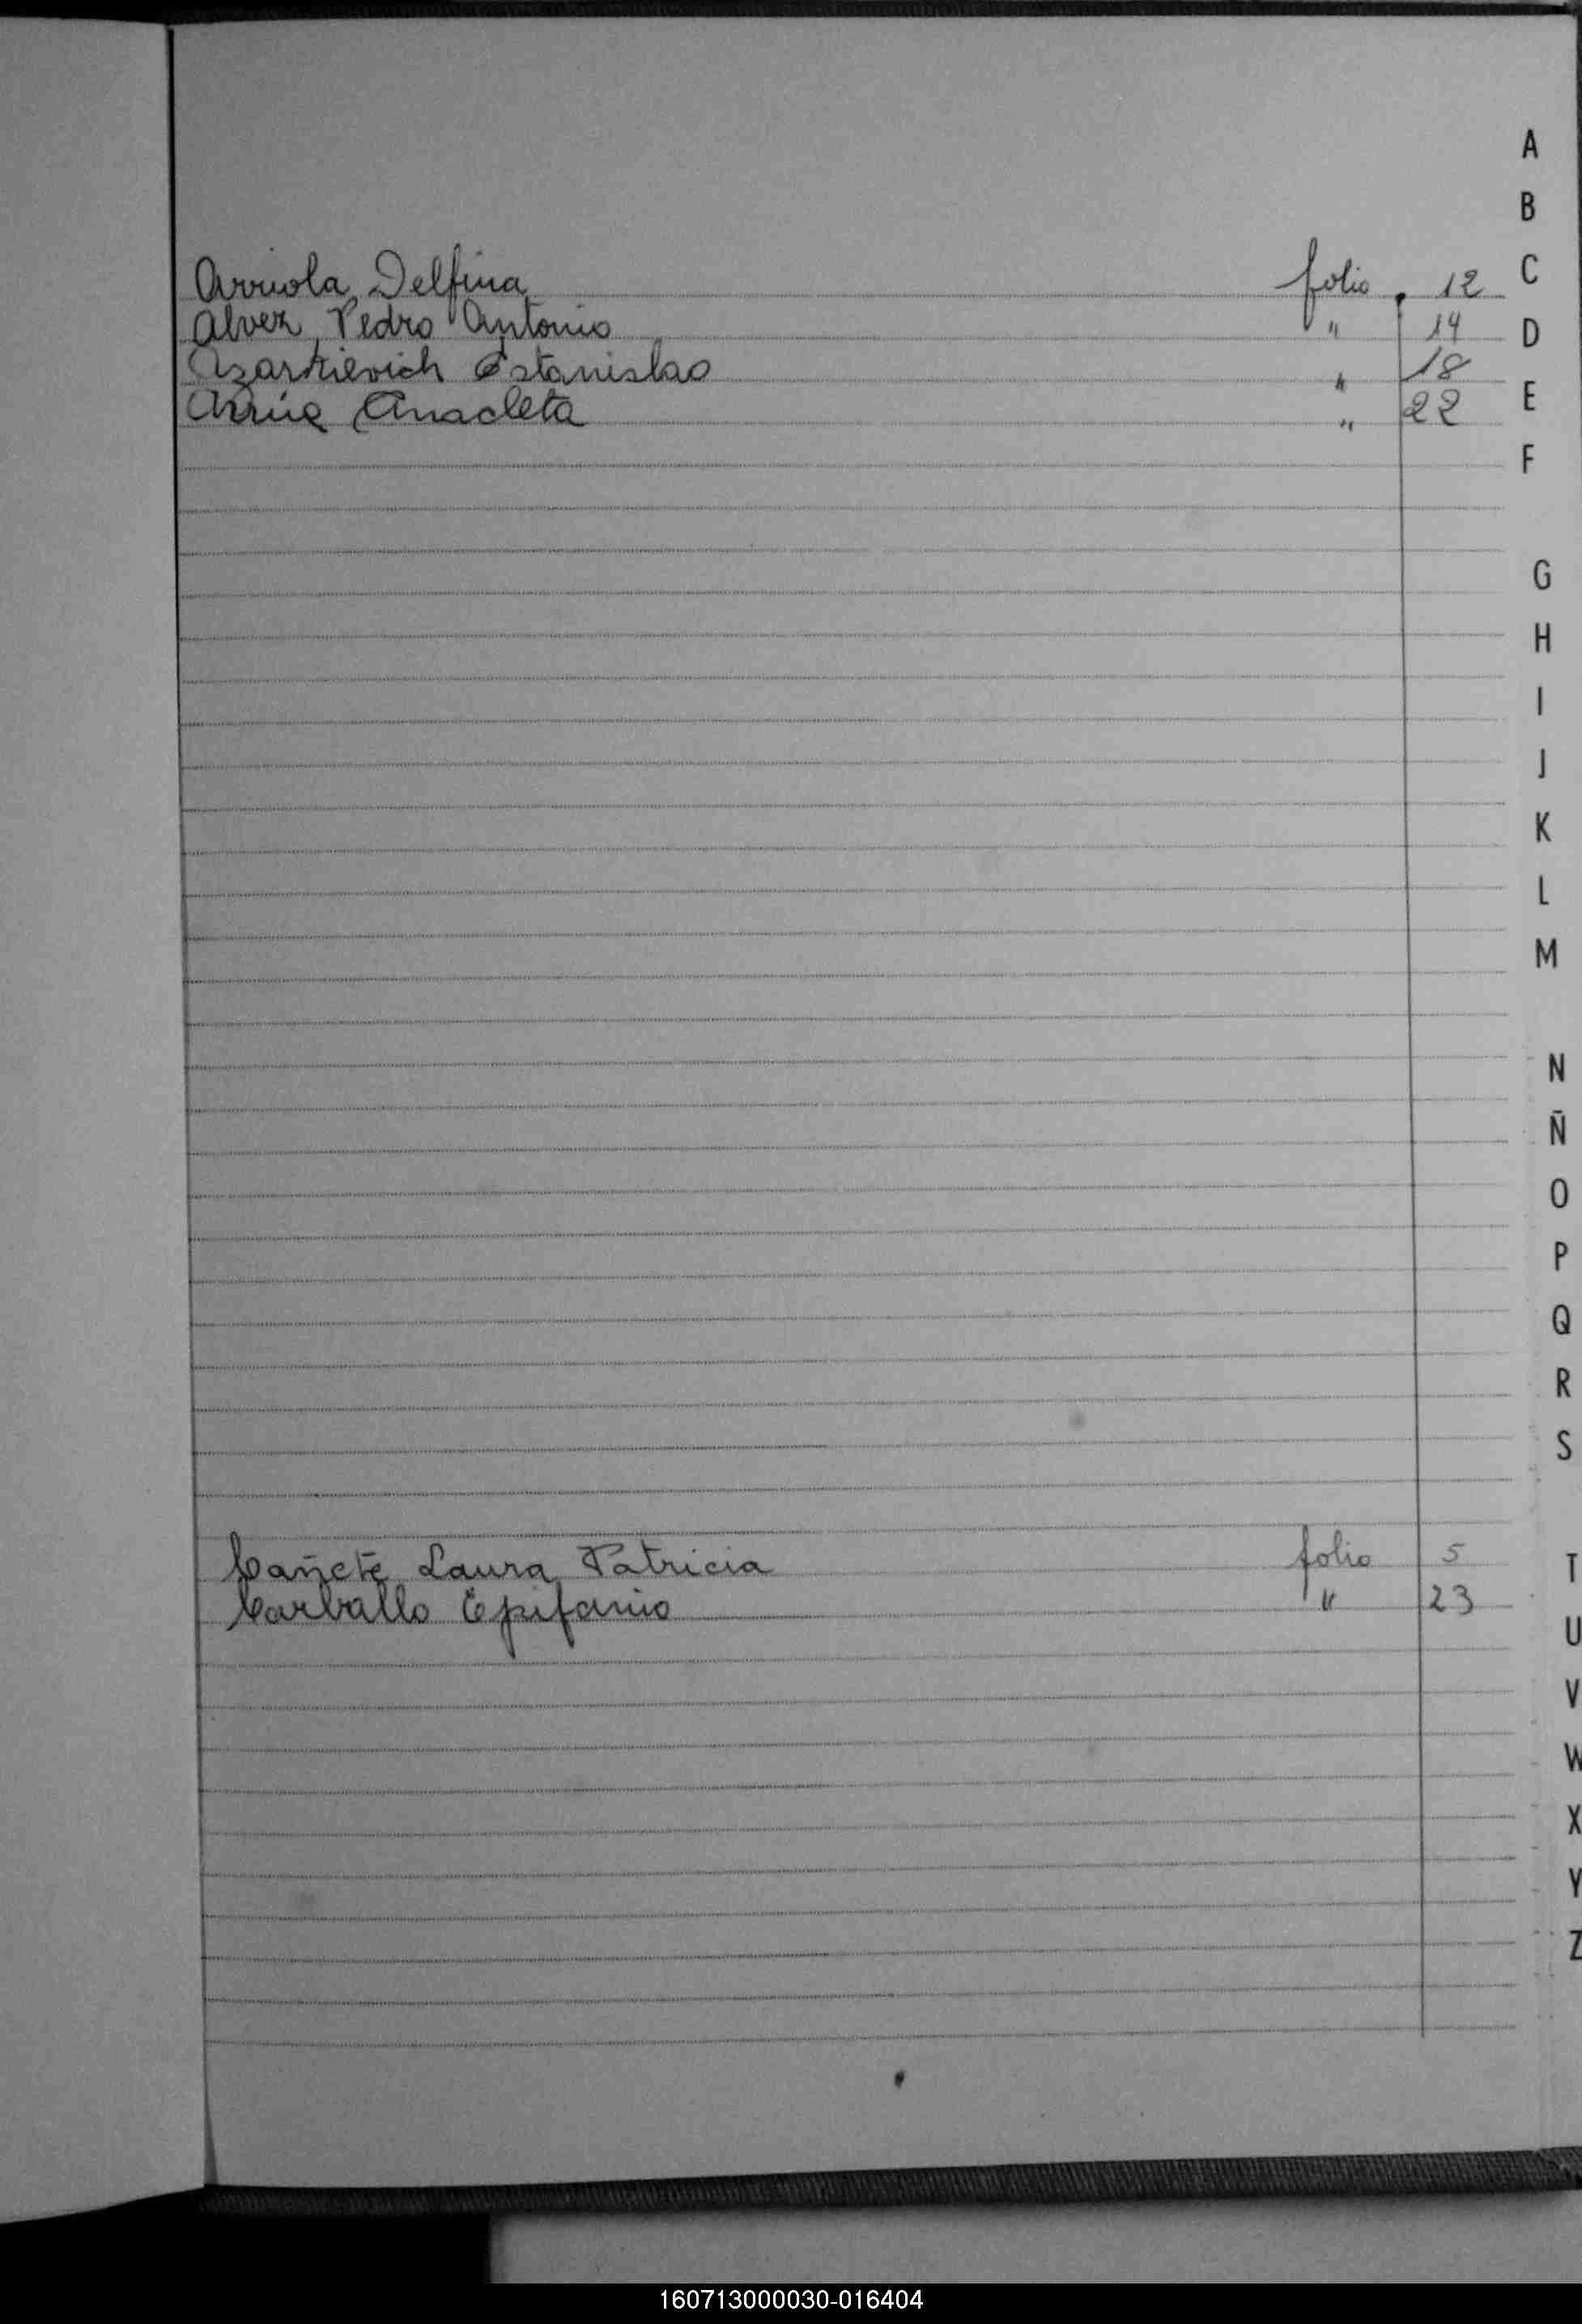 Arriola, Delfina folio 12
Alvez, Pedro Antonio " 14
Azarkievich Estanislao " 18
Arrúe Anacleta " 22
Cañete Laura Patricia folio 5
Carballo Epifanio " 23
A
B
C
D
E
F
G
H
I
J
K
L
M
N
Ñ
O
P
Q
R
S
T
U
V
W
X
Y
Z
160713000030-016404